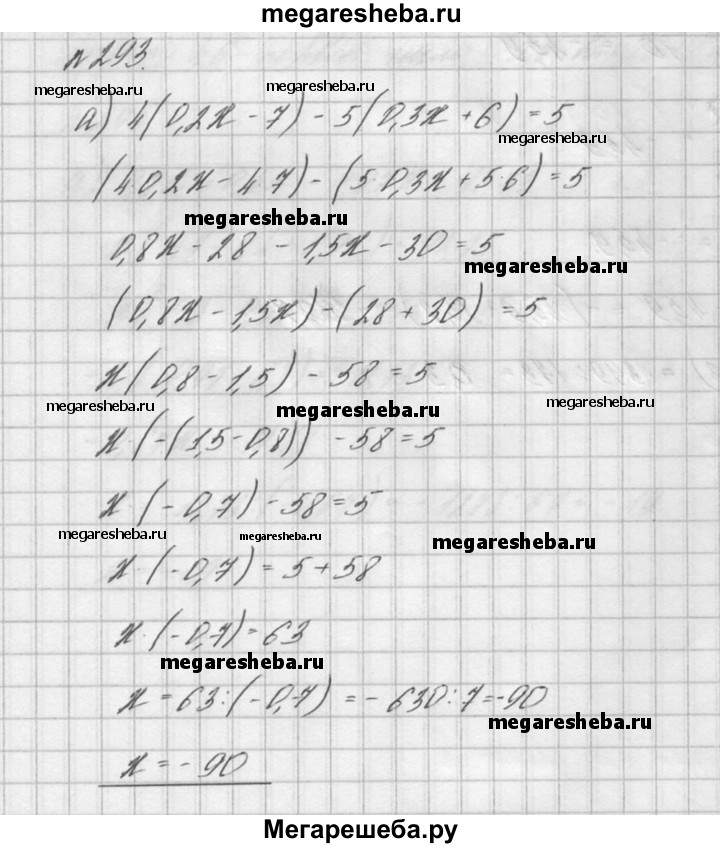 megaresheba.ru
№293.
megaresheba.ru megaresheba.ru
а) 4(0,2х - 7) - 5(0,3х + 6) = 5
megaresheba.ru
(4·0,2х - 4·7) - (5·0,3х + 5·6) = 5
megaresheba.ru
0,8х - 28 - 1,5х - 30 = 5
megaresheba.ru
(0,8х - 1,5х) - (28 + 30) = 5
х(0,8 - 1,5) - 58 = 5
megaresheba.ru megaresheba.ru megaresheba.ru
х·(-(1,5-0,8)) - 58 = 5
х·(-0,7) - 58 = 5
megaresheba.ru megaresheba.ru megaresheba.ru
х·(-0,7) = 5 + 58
х·(-0,7) = 63
megaresheba.ru
х = 63:(-0,7) = - 630:7 = -90
megaresheba.ru
х = - 90
Мегарешеба.ру